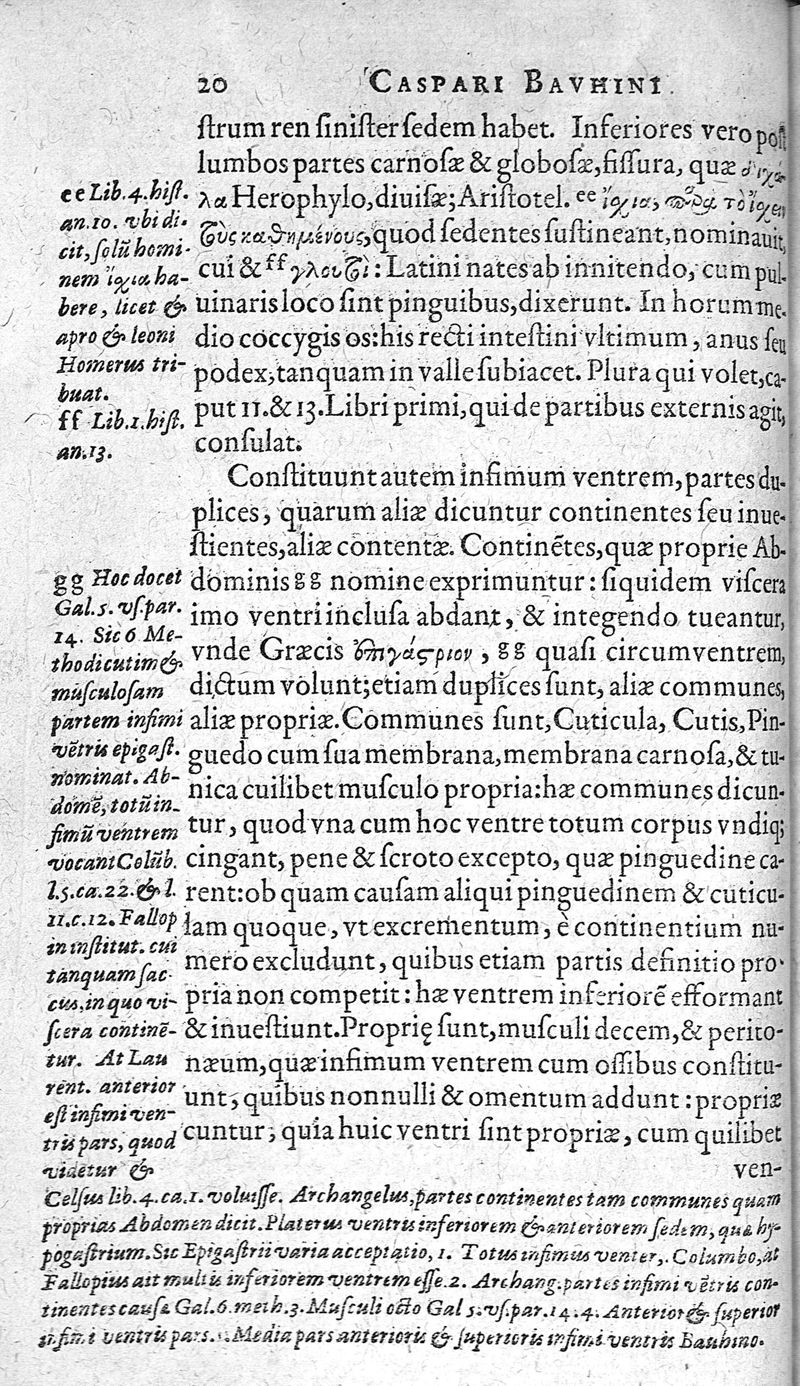 20 CASPARI BAVHINI.
ſtrum ren ſiniſter ſedem habet. Inferiores vero poſt
lumbos partes carnoſæ & globoſæ, fiſſura, quæ
λα Herophylo, diuiſæ; Ariſtotel. ee ἴσχια, τὸ
καθημένους, quod ſedentes ſuſtineant, nominauit,
cui & ff γλουτοὶ: Latini nates ab innitendo, cum pul-
uinaris loco ſint pinguibus, dixerunt. In horum me-
dio coccygis os: his recti inteſtini vltimum, anus ſeu
podex, tanquam in valle ſubiacet. Plura qui volet, ca-
put 11. & 13. Libri primi, qui de partibus externis agit,
conſulat.
Conſtituunt autem infimum ventrem, partes du-
plices, quarum aliæ dicuntur continentes ſeu inue-
ſtientes, aliæ contentæ. Continẽtes, quæ proprie Ab-
dominis gg nomine exprimuntur: ſiquidem viſcera
imo ventri incluſa abdant, & integendo tueantur,
vnde Græcis ἐπιγάστριον, gg quaſi circumventrem,
dictum volunt; etiam duplices ſunt, aliæ communes,
aliæ propriæ. Communes ſunt, Cuticula, Cutis, Pin-
guedo cum ſua membrana, membrana carnoſa, & tu-
nica cuilibet muſculo propria: hæ communes dicun-
tur, quod vna cum hoc ventre totum corpus vndiq;
cingant, pene & ſcroto excepto, quæ pinguedine ca-
rent: ob quam cauſam aliqui pinguedinem & cuticu-
lam quoque, vt excrementum, è continentium nu-
mero excludunt, quibus etiam partis definitio pro-
pria non competit: hæ ventrem inferiorẽ efformant
& inueſtiunt. Proprię ſunt, muſculi decem, & perito-
næum, quæ infimum ventrem cum oſſibus conſtitu-
unt, quibus nonnulli & omentum addunt: propriæ
cuntur, quia huic ventri ſint propriæ, cum quilibet
ven-
ee Lib. 4. hiſt.
an. 10. vbi di-
cit, ſolũ homi-
nem ἴσχια ha-
bere, licet &
apro & leoni
Homerus tri-
buat.
ff Lib. 1. hiſt.
an. 13.
gg Hoc docet
Gal. 5. vſ. par.
14. Sic 6 Me-
thodi cutim &
muſculoſam
partem infimi
vẽtris epigaſt.
nominat. Ab-
domẽ, totũ in-
fimũ ventrem
vocant Colũb.
l. 5. ca. 22. & l.
11. c. 12. Fallop
in inſtitut. cui
tanquam ſac-
cus, in quo vi-
ſcera continẽ-
tur. At Lau
rent. anterior
eſt infimi ven-
tris pars, quod
videtur &
Celſus lib. 4. ca. 1. voluiſſe. Archangelus, partes continentes tam communes quam
proprias Abdomen dicit. Platerus ventris inferiorem & anteriorem ſedem, quæ hy-
pogaſtrium. Sic Epigaſtrii varia acceptatio, 1. Totus infimus venter, . Columbo, at
Fallopius ait multis inferiorem ventrem eſſe. 2. Archang. partes infimi vẽtris con-
tinentes cauſa Gal. 6. meth. 3. Muſculi octo Gal 5. vſ. par. 14. 4. Anterior & ſuperior
infimi ventris pars. Media pars anterioris & ſuperioris infimi ventris Bauhino.